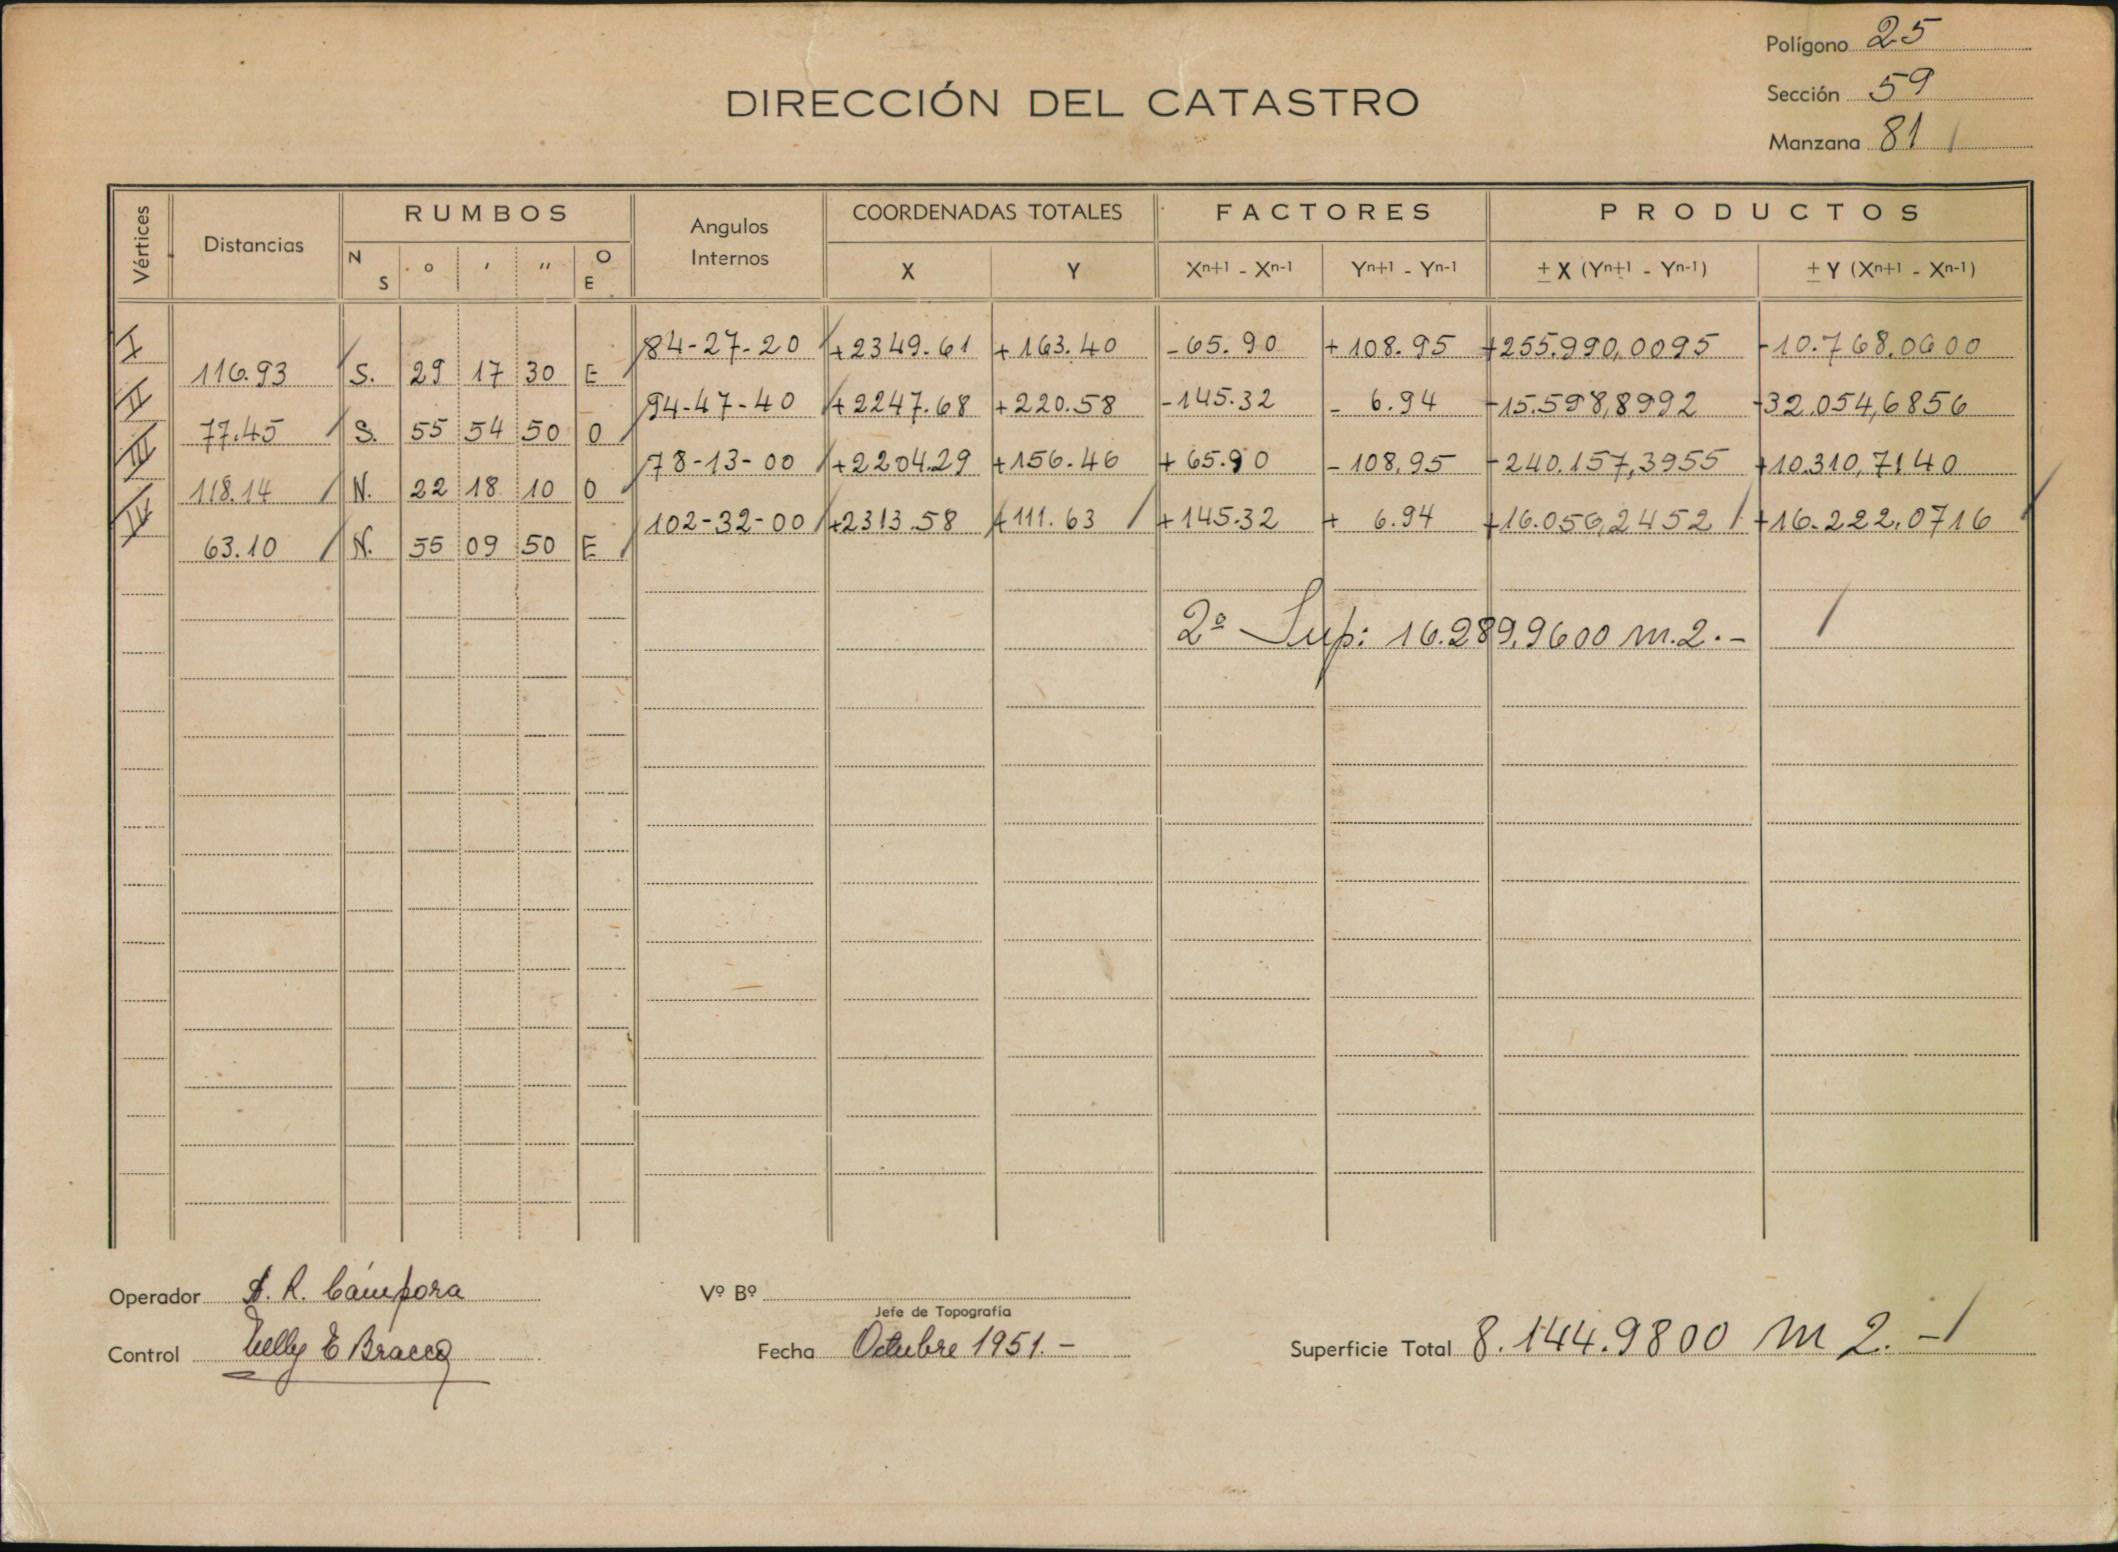 Polígono 25
DIRECCIÓN DEL CATASTRO
Sección 59
Manzana 81
Vértices Distancias RUMBOS Angulos Internos COORDENADAS TOTALES FACTORES PRODUCTOS
N S o ' " O E X Y Xn+1 - Xn-1 Yn+1 - Yn-1 ± X (Yn+1 - Yn-1) ± Y (Xn+1 - Xn-1)
I 84-27-20 +2349.61 +163.40 -65.90 +108.95 +255.990,0095 -10.768,0600
116.93 S. 29 17 30 E
II 94-47-40 +2247.68 +220.58 -145.32 - 6.94 -15.598,8992 -32.054,6856
77.45 S. 55 54 50 O
III 78-13-00 +2204.29 +156.46 +65.90 -108,95 -240.157,3955 +10.310,7140
118.14 N. 22 18 10 O
IV 102-32-00 +2313.58 +111.63 +145.32 + 6.94 +16.056,2452 +16.222,0716
63.10 N. 55 09 50 E
2ª Sup: 16.289,9600 m.2.-
Operador A. R. Cámpora
Vº Bº
Jefe de Topografía
Control Nelly E Bracco
Fecha Octubre 1951.-
Superficie Total 8.144.9800 m 2.-